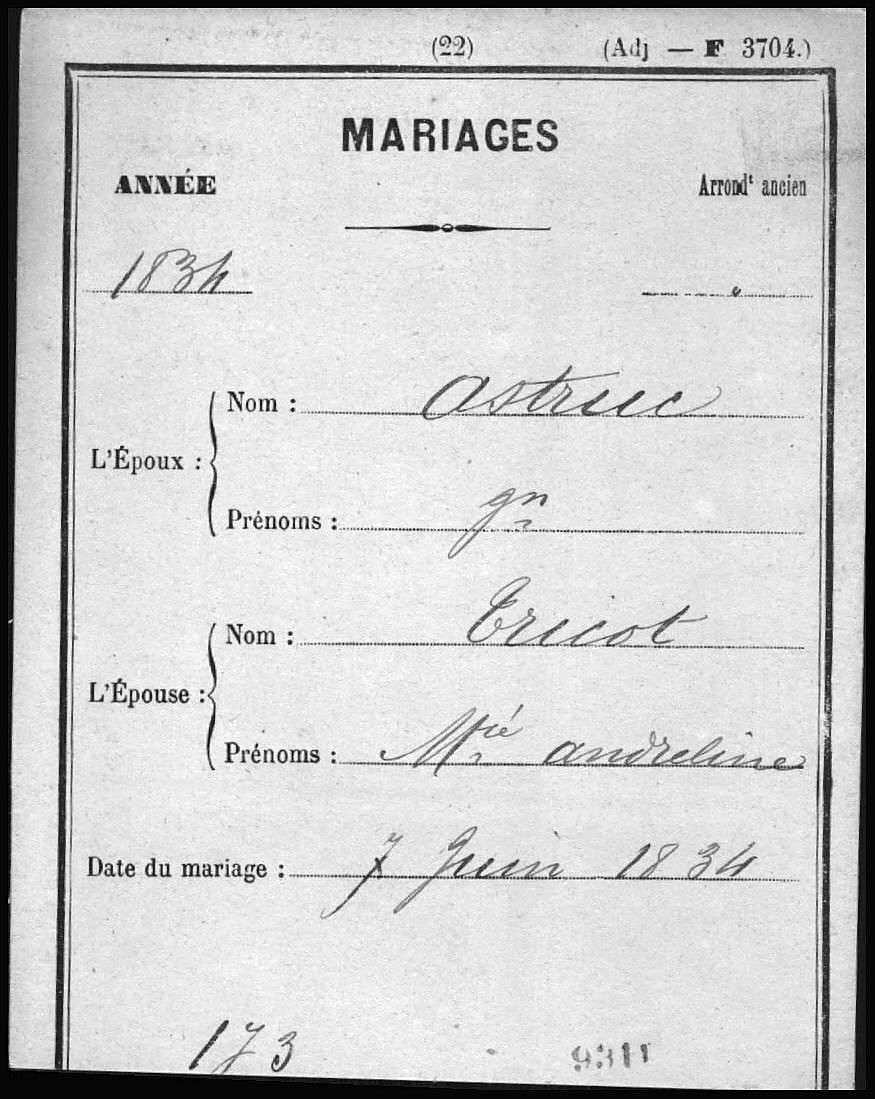 (22) (Adj — F 3704.)
MARIAGES
ANNÉE Arrondt ancien
1834 "
L'Époux :
Nom : Astruc
Prénoms : Jn
L'Épouse :
Nom : Tricot
Prénoms : Mie andreline
Date du mariage : 7 Juin 1834
173 9311